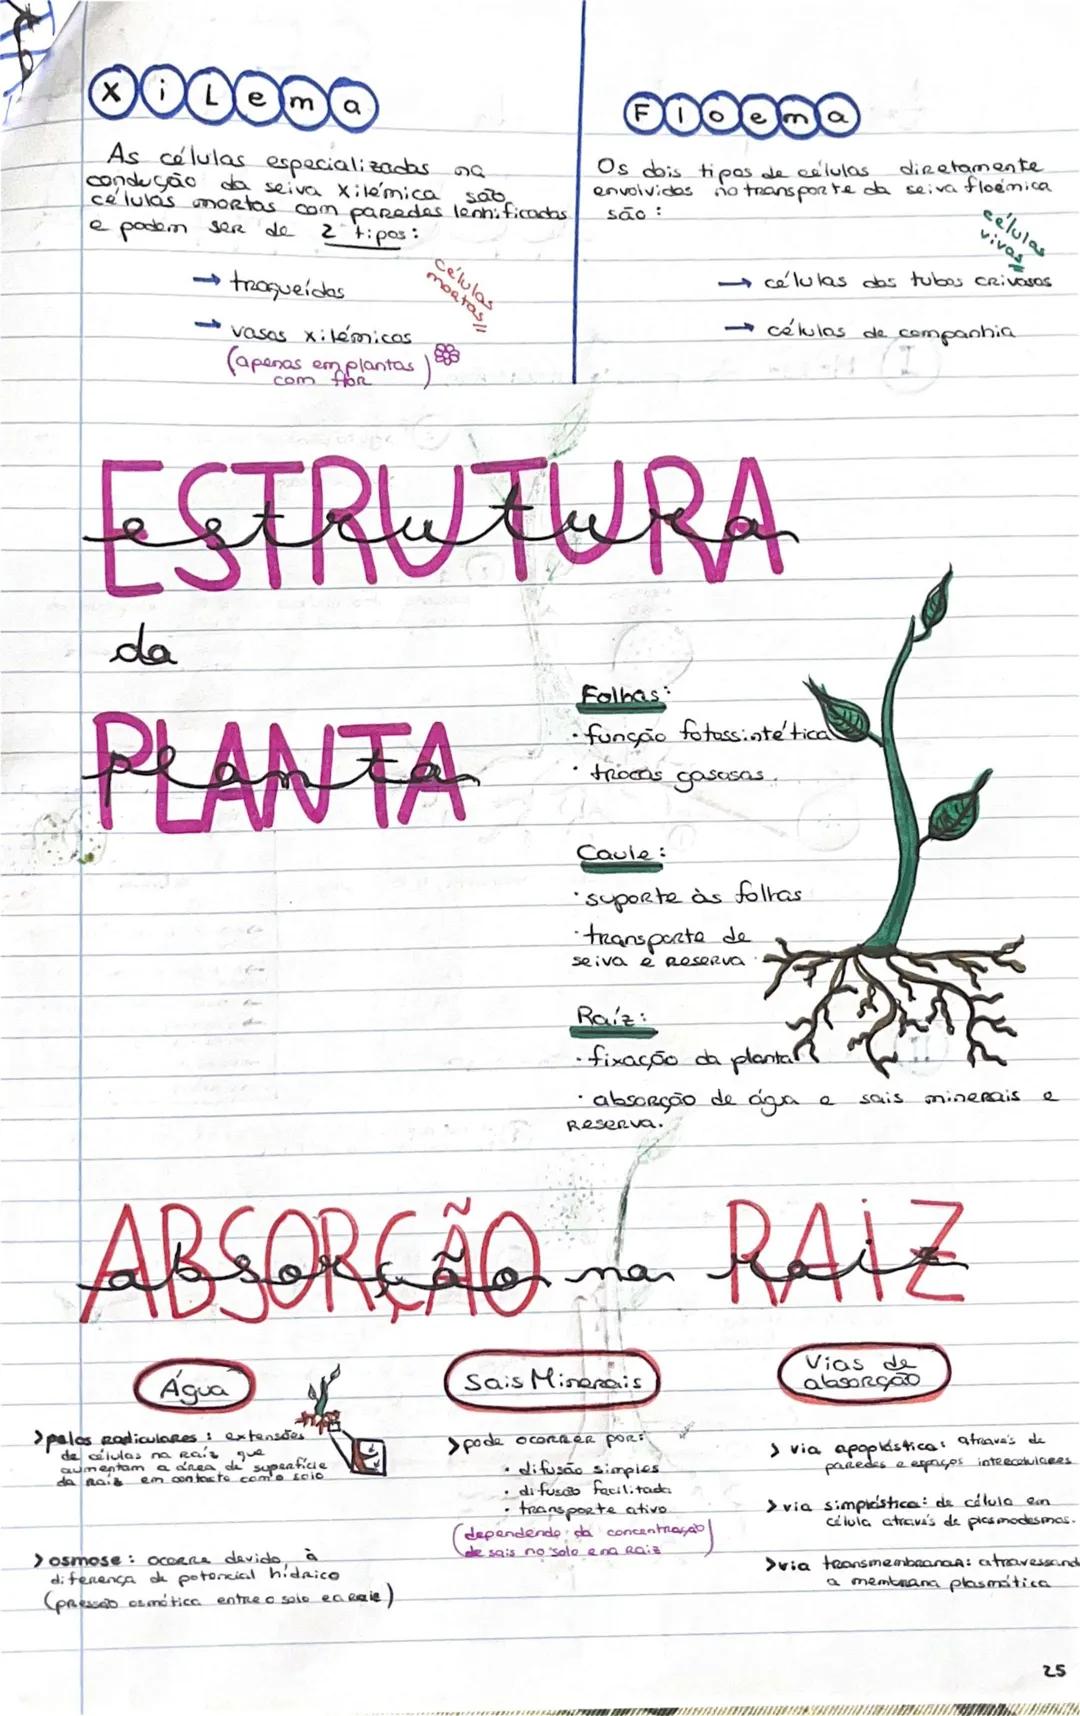 Xilema
As células especializadas na
condução da seiva xilémica são
células mortas com paredes lenhificadas
e podem ser de 2 tipos:
→ traqueídos
células
mortas
→ vasos xilémicos
(apenas em plantas
com flor)
Floema
Os dois tipos de células diretamente
envolvidos no transporte da seiva floémica
são:
células
vivas
→ células dos tubos crivosos
→ células de companhia
ESTRUTURA
estrutura
da
PLANTA
planta
Folhas:
· função fotossintética
· trocas gasosas.
Caule:
· suporte às folhas
· transporte de
seiva e reserva
Raíz:
· fixação da planta
· absorção de água e sais minerais e
reserva.
ABSORÇÃO RAIZ
absorção na raiz
Água
> pelos radiculares: extensões
de células na raíz que
aumentam a área de superfície
da raiz em contacto com o solo
> osmose: ocorre devido à
diferença de potencial hídrico
(pressão osmótica entre o solo e a raiz)
Sais Minerais
> pode ocorrer por:
· difusão simples
· difusão facilitada
· transporte ativo
(dependendo da concentração
de sais no solo e na raiz)
Vias de
absorção
> via apoplástica: através de
paredes e espaços intercelulares
> via simplástica: de célula em
célula através de plasmodesmos.
> via transmembranar: atravessand
a membrana plasmática
25